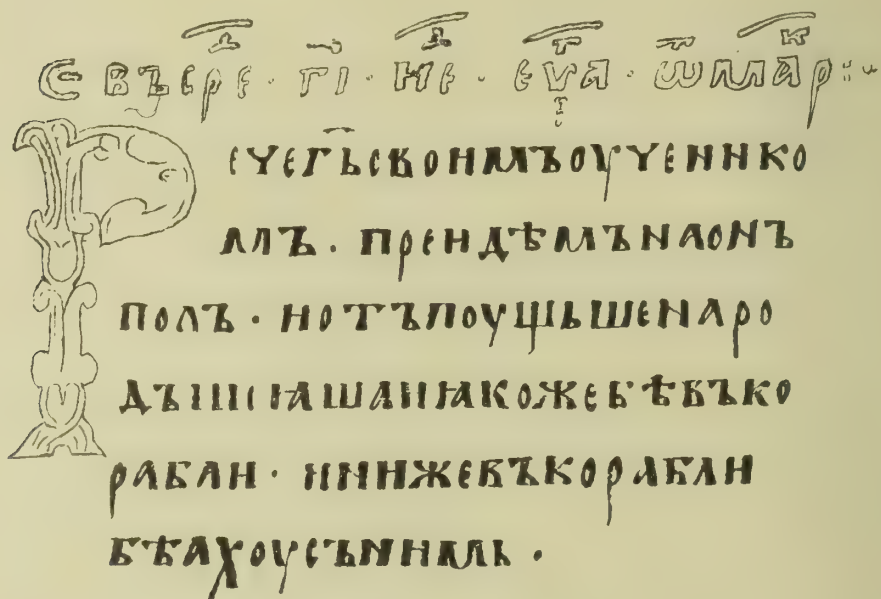 С въ срєⷣ · г҃і · нєⷣ · єѵаⷢ · ѿ марⷦ :~
Рєчєг҃ьсвоимъоучєнико
мъ · прєидѣмънаонъ
полъ · иотъпоущьшєнаро
дъıпоꙗшаиꙗкожєбѣвъко
рабли · иинижєвъкорабли
бѣахоусънимь ·